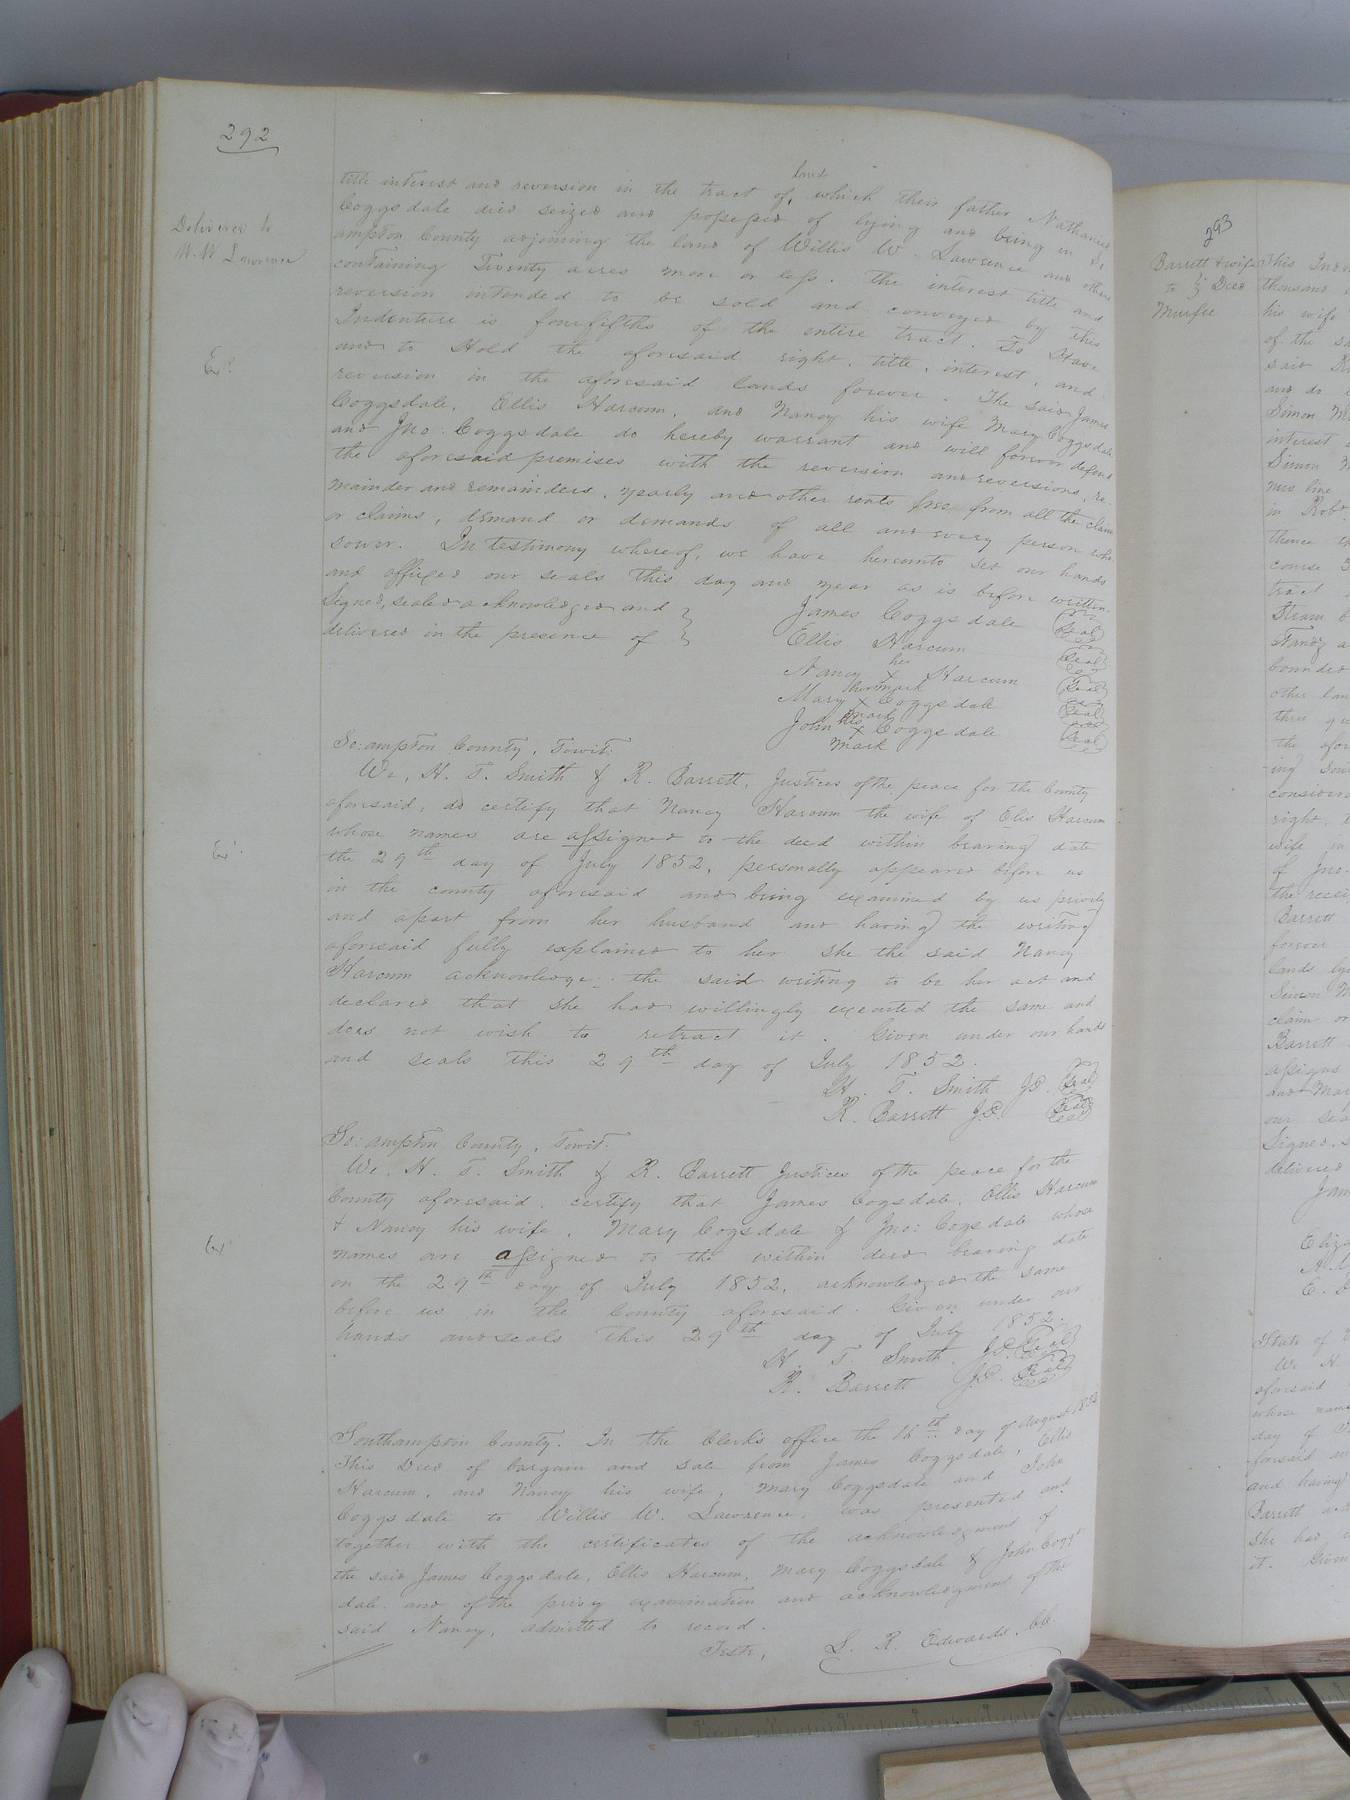 292
Delivered to
W. W Lawrence
Ex?
Ex!
Ex!
land
title interest and reversion in the tract of, which their father Nathaniel
Coggsdale died seized and possessed of lying and being in So
ampton County adjoining the land of Willis W. Lawrence and others
containing Twenty acres more or less. the interest title and
reversion intended to be sold and conveyed by this
Indenture is fourfifths of the entire tract. To Have
and to Hold the aforesaid right, title, interest, and
reversion in the aforesaid lands forever. The said James
Coggsdale, Ellis Harcum, and Nancy his wife Mary Coggsdale
and Jno. Coggsdale do hereby warrant and will forever defend
the aforesaid premises with the reversion and reversions, re
mainder and remainders, yearly and other rents free from all the claim
or claims, demand or demands of all and every person who
soever. In testimony whereof, we have hereunto set our hands
and affixed our seals this day and year as is before written.
Signed, sealed acknowledged and }
delivered in the presence of }
James Coggsdale Seal
Ellis Harcum Seal
her
Nancy x Harcum Seal
her mark
Mary x Coggsdale Seal
mark
his
John x Coggsdale Seal
mark
So: ampton County, Towit:
We, H. T. Smith & R. Barrett, Justices of the peace for the County
aforesaid, do certify that Nancy Harcum the wife of Elis Harcum
whose names are assigned to the deed within bearing date
the 29th day of July 1852, personally appeared before us
in the county aforesaid and being examined by us privily
and apart from her husband and having the writing
aforesaid fully explained to her she the said Nancy
Harcum acknowledge. the said writing to be her act and
declared that she had willingly executed the same and
does not wish to retract it. Given under our hands
and seals this 29th day of July 1852.
H. T. Smith J.P. Seal
R. Barrett J.P. Seal
So: ampton County, Towit:
We. H. T. Smith & R. Barrett Justices of the peace for the
County aforesaid, certify that James Cogsdale, Ellis Harcum
& Nancy his wife, Mary Cogsdale & Jno: Cogsdale whose
names are assigned to the within deed bearing date
on the 29th day of July 1852, acknowledged the same
before us in the County aforesaid. Given under our
hands and seals this 29th day of July 1852.
H. T. Smith. J.P. Seal
R. Barrett J.P. Seal
Southampton County. In the Clerk's office the 16th day of August 1852
This Deed of bargain and sale from James Coggsdale, Ellis
Harcum, and Nancy his wife, Mary Coggsdale and John
Coggsdale to Willis W. Lawrence, was presented and
together with the certificates of the acknowledgment of
the said James Coggsdale, Ellis Harcum, Mary Coggsdale & John Coggs
dale. and of the privy examination and acknowledgment of the
said Nancy, admitted to record.
Teste, L. R. Edwards. CC.
293
Barrett & wife
to } Deed
Murfee
This Ind
thousand
his wife
of the sa
said R
and do
Simon M
interest
Simon M
in Robt.
thence
course
tract
Stream
bounded
other lan
the afor
considera
right,
wife in
of Jno.
the recei
Barrett
forever
lands ly
Simon M
claim or
Barrett
assigns
and Mar
our sea
Signed, S
delivered
Jam
Eliza
State of
We H.
aforesaid
whose name
day of
foresaid
and having
Barrett
she had
it. Given